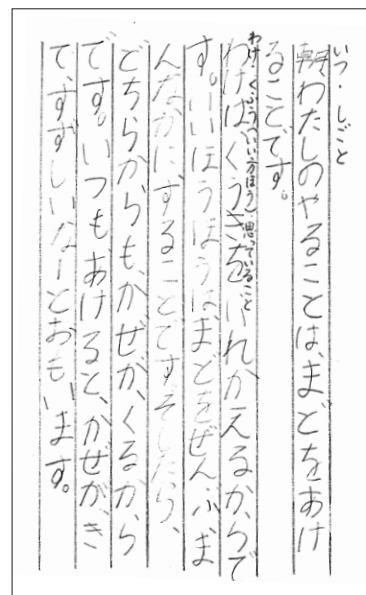 いつ・しごと
朝わたしのやることは、まどをあけ
ることです。
わけ・くふう(いい方ほう)思っていること
わけはくうきをいれかえるからで
す。いいほうほうは、まどをぜんぶま
んなかにすることですそしたら、
どちらからも、かぜが、くるから
です。いつもあけると、かぜが、き
て、すずしいなーとおもいます。